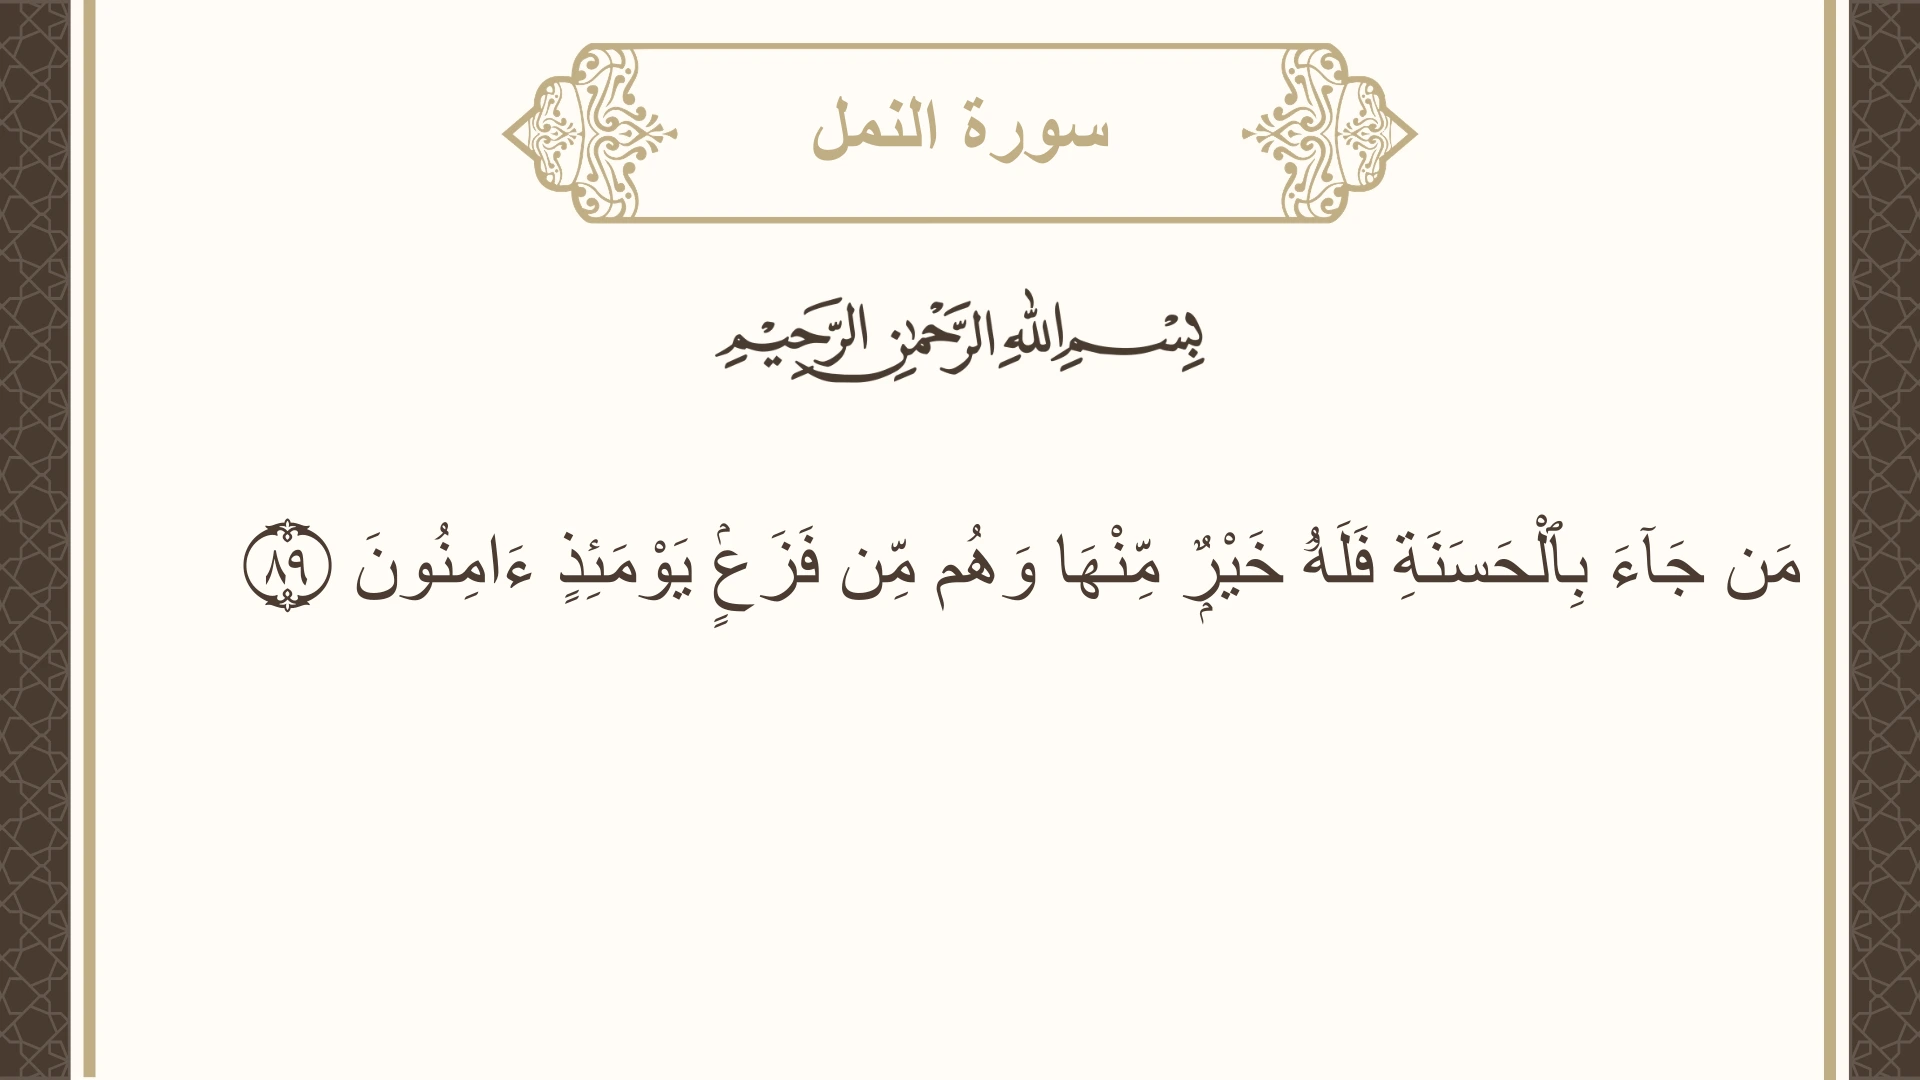 سورة النمل
بِسْمِ اللهِ الرَّحْمٰنِ الرَّحِيْمِ
مَن جَآءَ بِٱلْحَسَنَةِ فَلَهُۥ خَيْرٌۭ مِّنْهَا وَهُم مِّن فَزَعٍۢ يَوْمَئِذٍ ءَامِنُونَ ٨٩